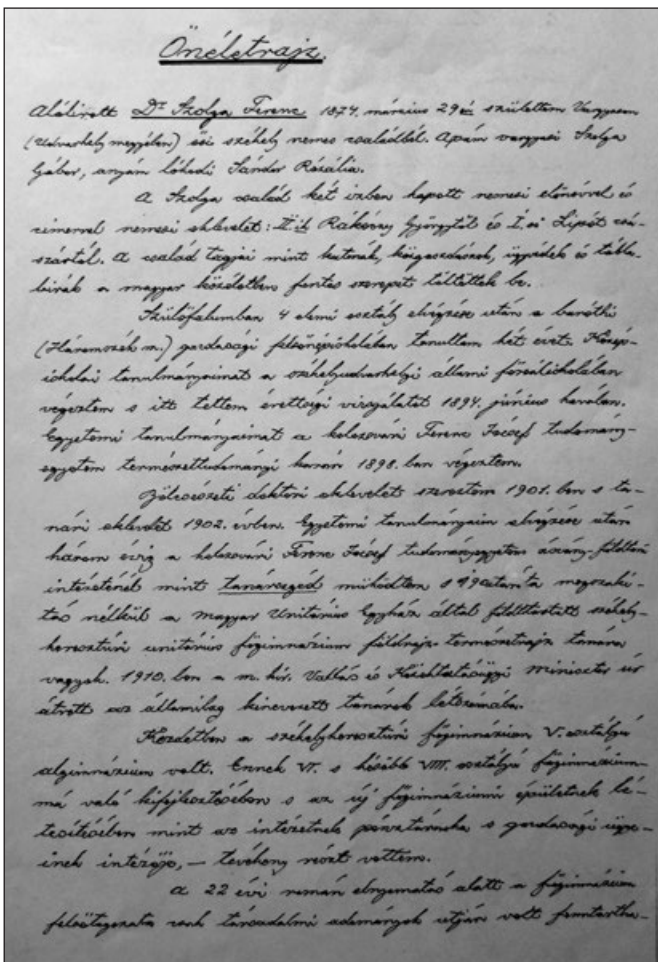 Önéletrajz.
Alólirott Dr Szolga Ferenc 1874. március 29én születtem Vargyason
(Udvarhely megyében) ősi székely nemes családból. Apám vargyasi Szolga
Gábor, anyám lókodi Sándor Rozália.
A Szolga család két izben kapott nemesi előnévvel és
cimerrel nemesi oklevelet: II. ik Rákóczy Györgytől és I. ső Lipót csá-
szártól. A család tagjai mint katonák, közgazdászok, ügyvédek és tábla-
birák a magyar közéletben fontos szerepet töltöttek be.
Szülőfalumban 4 elemi osztály elvégzése után a baróthi
(Háromszék m.) gazdasági felsőnépiskolában tanultam két évet. Közép-
iskolai tanulmányaimat a székelyudvarhelyi állami főreáliskolában
végeztem s itt tettem érettségi vizsgálatot 1894. június havában.
Egyetemi tanulmányaimat a kolozsvári Ferenc József tudomány-
egyetem természettudományi karán 1898. ban végeztem.
Bölcsészeti doktori oklevelet szereztem 1901. ben s ta-
nári oklevelet 1902. évben. Egyetemi tanulmányaim elvégzése után
három évig a kolozsvári Ferenc József tudományegyetem ásvány-földtani
intézeténél mint tanársegéd működtem s óta megszaki-
tás nélkül a Magyar Unitárius Egyház által fölállitott székely-
keresztúri unitárius főgimnázium földrajz-természetrajz tanára
vagyok. 1910. ben a m. kir. Vallás és Közoktatásügyi Miniszter úr
átvett az államilag kinevezett tanárok létszámába.
Kezdetben a székelykeresztúri főgimnázium V. osztályú
algimnázium volt. Ennek VI. s később VIII. osztályú főgimnázium-
má való kifejlesztésében s az új főgimnáziumi épületnek lé-
tesitésében mint az intézetnek pénztárnoka s gazdasági ügye-
inek intézője, — tevékeny részt vettem.
A 22 évi román elnyomatás alatt a főgimnázium
felsőtagozata csak társadalmi adományok utján volt fenntartha-